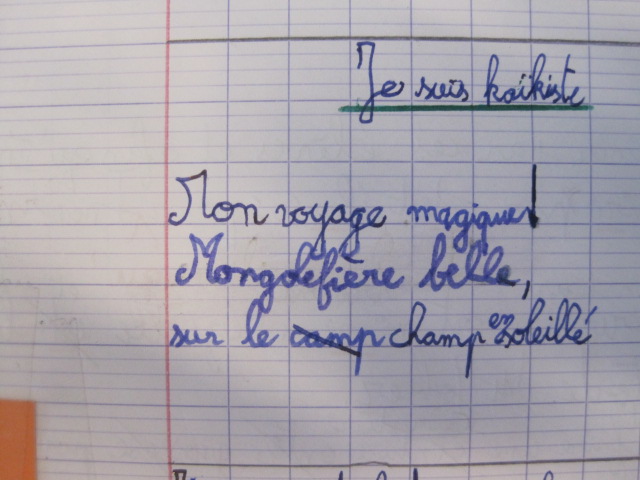 Je suis kaïkiste
Mon voyage magique!
Mongolefière belle,
sur le camp champ ensoleillé